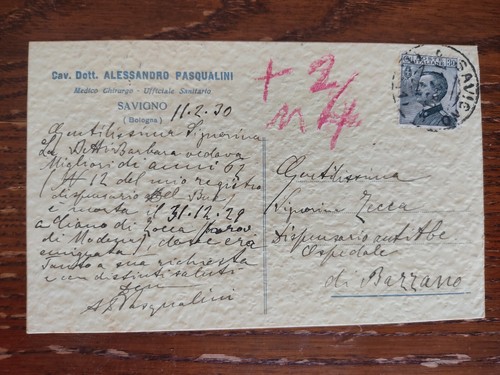 Cav. Dott. ALESSANDRO PASQUALINI
Medico Chirurgo - Ufficiale Sanitario
SAVIGNO
(Bologna)
11.2.30
Gentilissima Signorina
La Detti Barbara vedova
Migliori di anni 67
N 12 del mio registro
dispensario
è morta il 31.12.29
a Ciano di Zocca (prov
di Modena), dove era
emigrata,
tanto a sua richiesta
e con distinti saluti
A. Pasqualini
+ 2/
n 4
SAVIGNO
Gentilissima
Signorina Zecca
Dispensario antitbc
Ospedale
di Bazzano